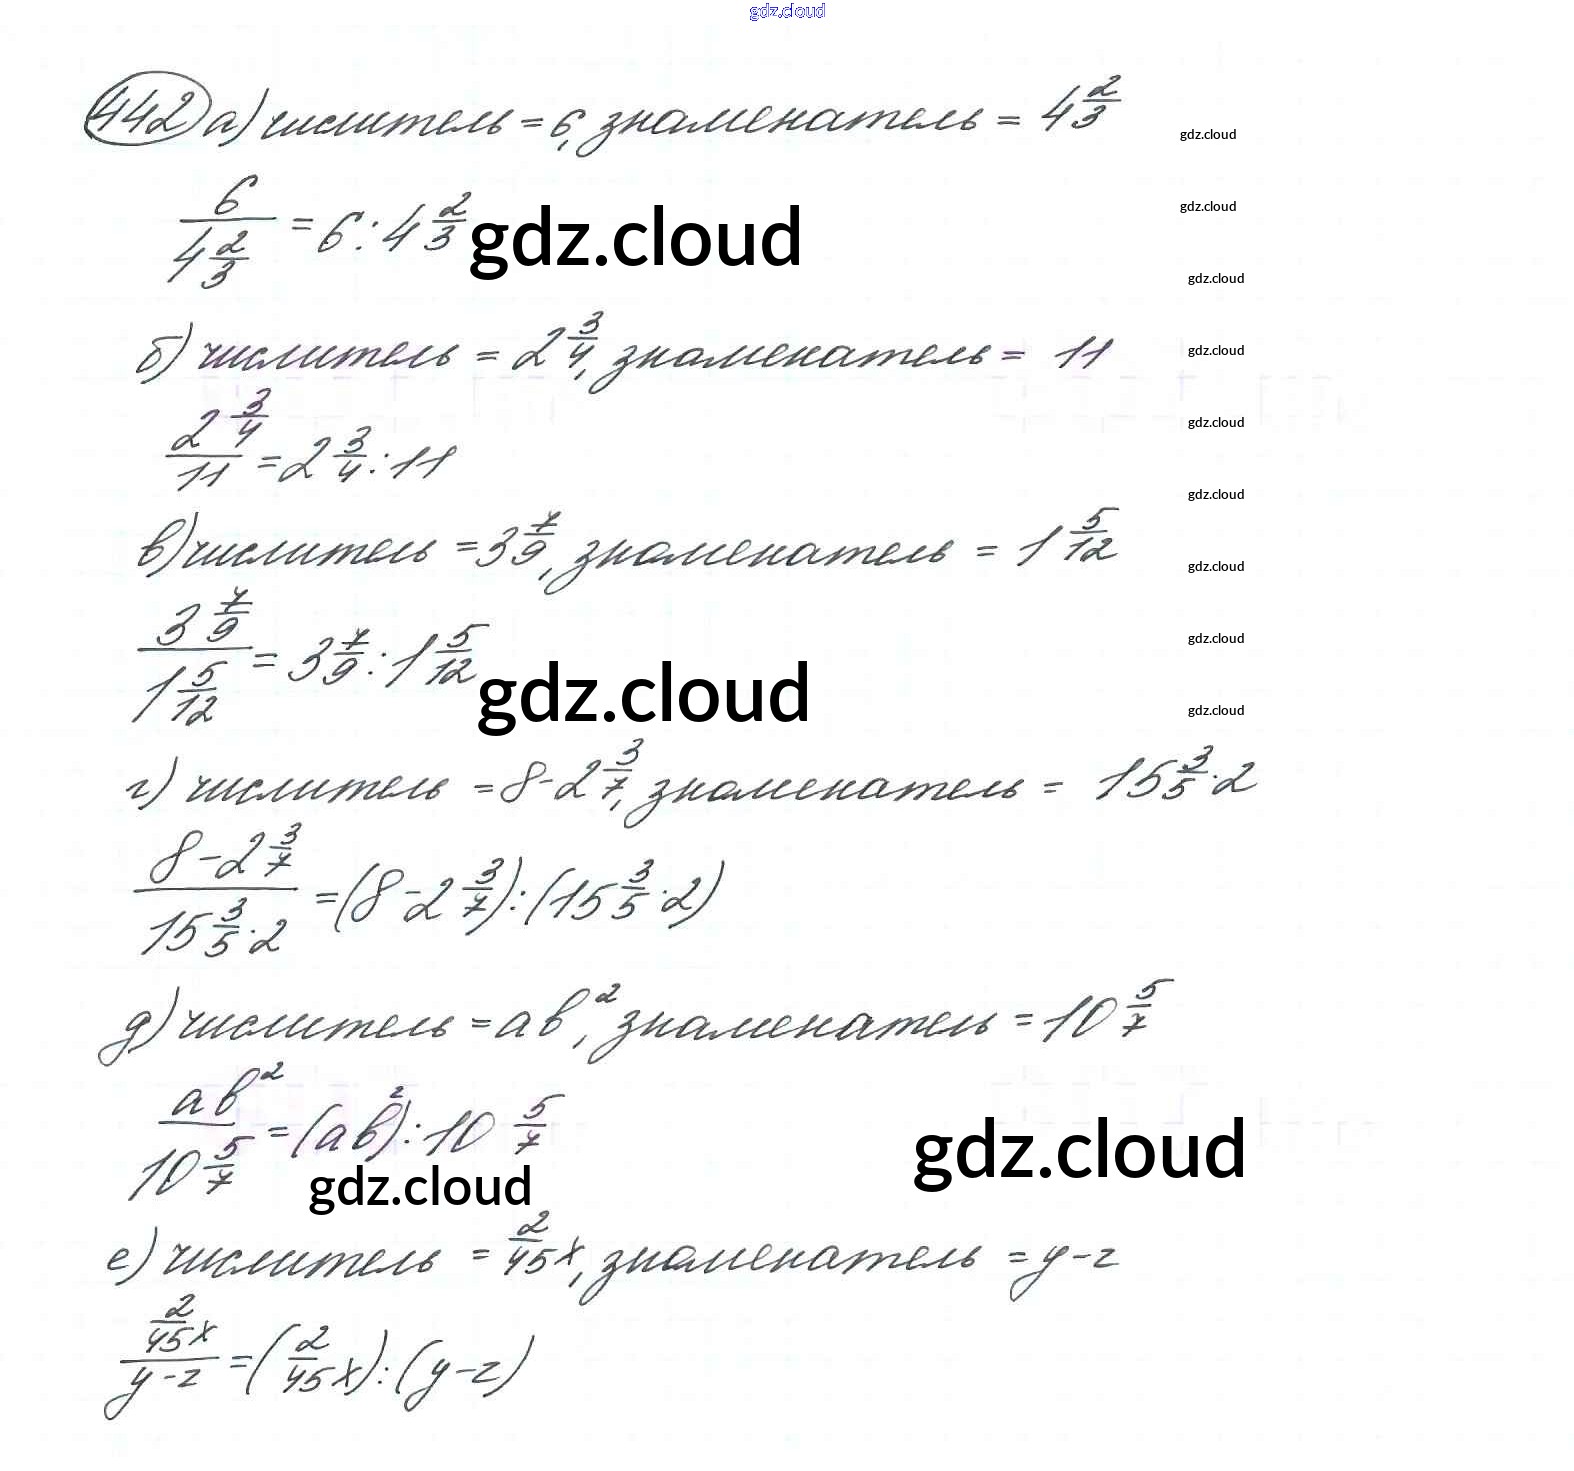 gdz.cloud
442 а) числитель = 6, знаменатель = 4 2/3
gdz.cloud
gdz.cloud
6 / 4 2/3 = 6 : 4 2/3
gdz.cloud
gdz.cloud
б) числитель = 2 3/4, знаменатель = 11
gdz.cloud
2 3/4 / 11 = 2 3/4 : 11
gdz.cloud
gdz.cloud
в) числитель = 3 7/9, знаменатель = 1 5/12
gdz.cloud
3 7/9 / 1 5/12 = 3 7/9 : 1 5/12
gdz.cloud
gdz.cloud
gdz.cloud
г) числитель = 8 - 2 3/7, знаменатель = 15 3/5 · 2
8 - 2 3/7 / 15 3/5 · 2 = (8 - 2 3/7) : (15 3/5 · 2)
д) числитель = ab², знаменатель = 10 5/7
ab² / 10 5/7 = (ab²) : 10 5/7
gdz.cloud
gdz.cloud
е) числитель = 2/45 x, знаменатель = y - z
2/45 x / y - z = (2/45 x) : (y - z)